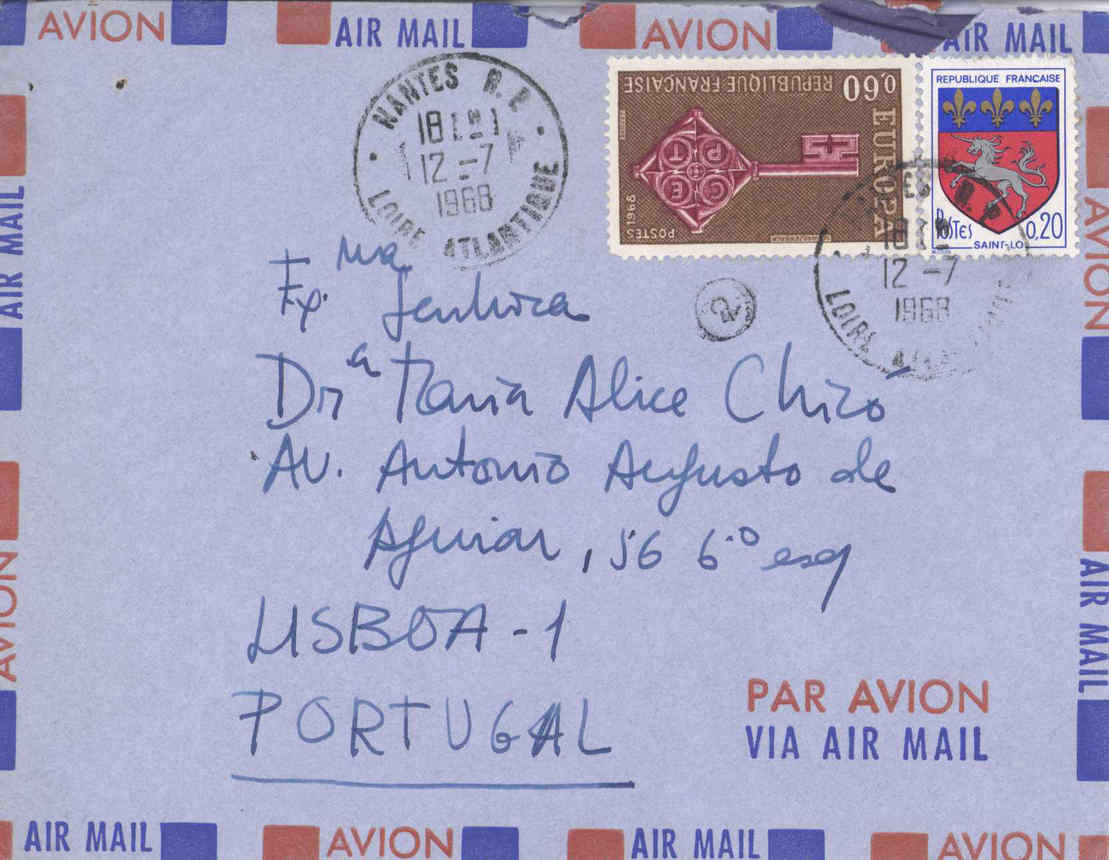 AVION AIR MAIL AVION AIR MAIL
NANTES R. P.
18 H
12 -7
1968
LOIRE ATLANTIQUE
0,60 REPUBLIQUE FRANÇAISE
EUROPA
C E P T
POSTES 1968
REPUBLIQUE FRANÇAISE
POSTES 0,20
SAINT-LO
R. P
18 H
12 -7
1968
LOIRE ATLANTIQUE
Exma Senhora
Dra Maria Alice Chicó
Av. Antonio Augusto de
Aguiar, 56 6.º esq
LISBOA - 1
PORTUGAL
PAR AVION
VIA AIR MAIL
AIR MAIL
AVION
AVION
AIR MAIL
AIR MAIL AVION AIR MAIL AVION